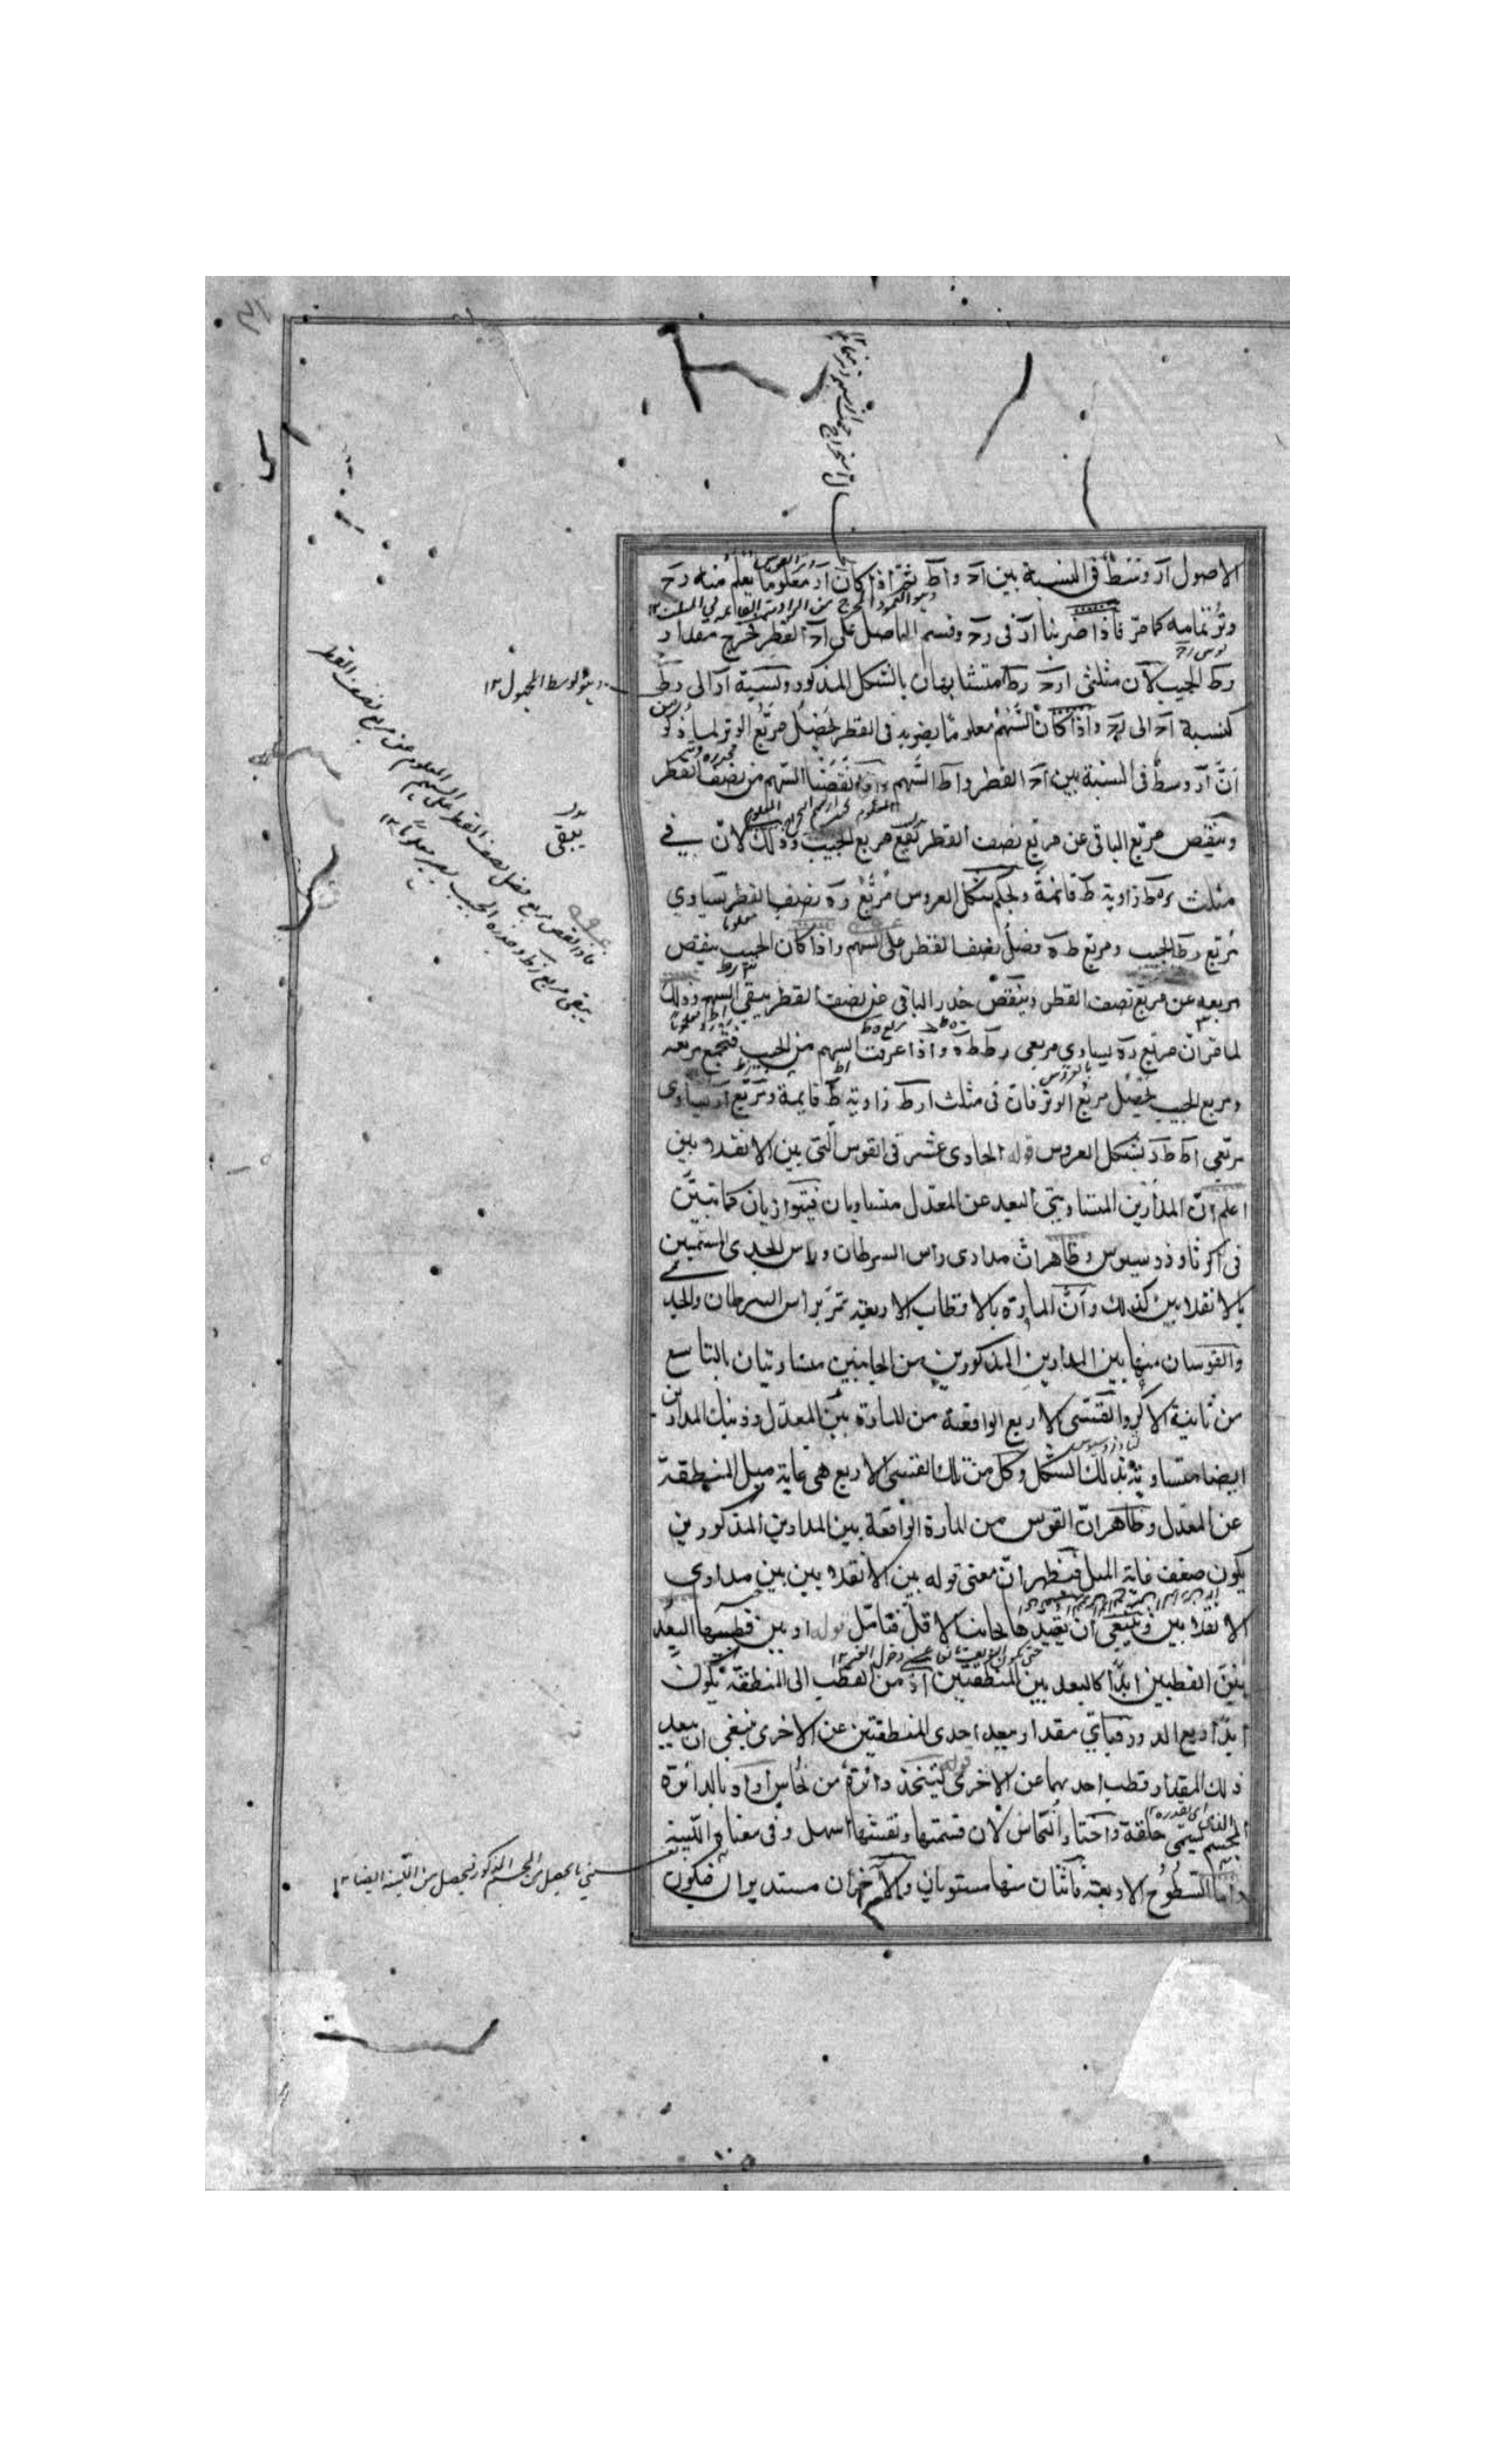 الاصول ار وسط فى النسبة بين اح و اط ثم اذا كان ار معلوما يعلم منه رح
وتر تمامه كما مر فاذا ضربنا ار فى رح وقسم الحاصل على اح القطر خرج مقدار
رط الجيب لان مثلثى ارح رط متشابهان بالشكل المذكور ونسبة ار الى رط
كنسبة اح الى رح واذا كان السهم معلوما يضرب فى القطر يحصل مربع الوتر لما ذكر
ان ار وسط فى النسبة بين اح القطر واط السهم واذا نقصنا السهم من نصف القطر
وينقص مربع الباقى عن مربع نصف القطر بقى مربع الجيب وذلك لان فى
مثلث ره ط زاوية ط قائمة وبحكم شكل العروس مربع ره نصف القطر يساوى
مربع رط الجيب ومربع ط ه فضل نصف القطر على السهم واذا كان الجيب ينقص
مربعه عن مربع نصف القطر وينقص جذر الباقى عن نصف القطر يبقى السهم وذلك
لما مر ان مربع ره يساوى مربعى رط ط ه واذا عرفت السهم من الجيب فتجمع مربعه
ومربع الجيب يحصل مربع الوتر فان فى مثلث ارط زاوية ط قايمة ومربع ار يساوى
مربعى اط ط ر بشكل العروس قوله الحادى عشر فى القوس التى بين الانقلابين
اعلم ان المدارين المتساويتى البعد عن المعدل متساويان فيتوازيان كما تبين
فى اكر ثاوذوسيوس وظاهر ان مدارى راس السرطان وراس الجدى المسمين
بالانقلابين كذلك وان المارة بالاقطاب الاربعة تمر براس السرطان والجدى
والقوسان منها بين المدارين المذكورين من الجانبين متساويتان بالتاسع
من ثانية الاكر والقسى الاربع الواقعة من المارة بين المعدل وذينك المدارين
ايضا متساوية بذلك الشكل وكل من تلك القسى الاربع هى غاية ميل المنطقة
عن المعدل وظاهر ان القوس من المارة الواقعة بين المدارين المذكورين
يكون ضعف غاية الميل فظهر ان معنى قوله بين الانقلابين بين مدارى
الانقلابين وينبغى ان يقيدها بجانب الاقل فتامل قوله او بين قطبيهما البعد
بين القطبين ابدا كالبعد بين المنطقتين اذ من القطب الى المنطقة يكون
ابدا ربع الدور فباى مقدار يبعد احدى المنطقتين عن الاخرى ينبغى ان يبعد
ذلك المقدار قطب احديهما عن الاخرى قوله ليتخذ دائرة من نحاس اراد بالدائرة
المجسم الذى يسمى حلقة واختار النحاس لان قسمتها ونقشها اسهل وفى معناه اللبنة
واما السطوح الاربعة فاثنان منها مستويان والاخران مستديران فيكون
وتر الوسط المجهول ١٢
فاذا نقص مربع فضل نصف القطر على السهم المعلوم عن مربع نصف القطر
يبقى مربع رط وجذره الجيب يصير معلوما ١٢
يبقى
يعنى ما يحصل من الجسم المذكور يحصل من اللبنة ايضا ١٢